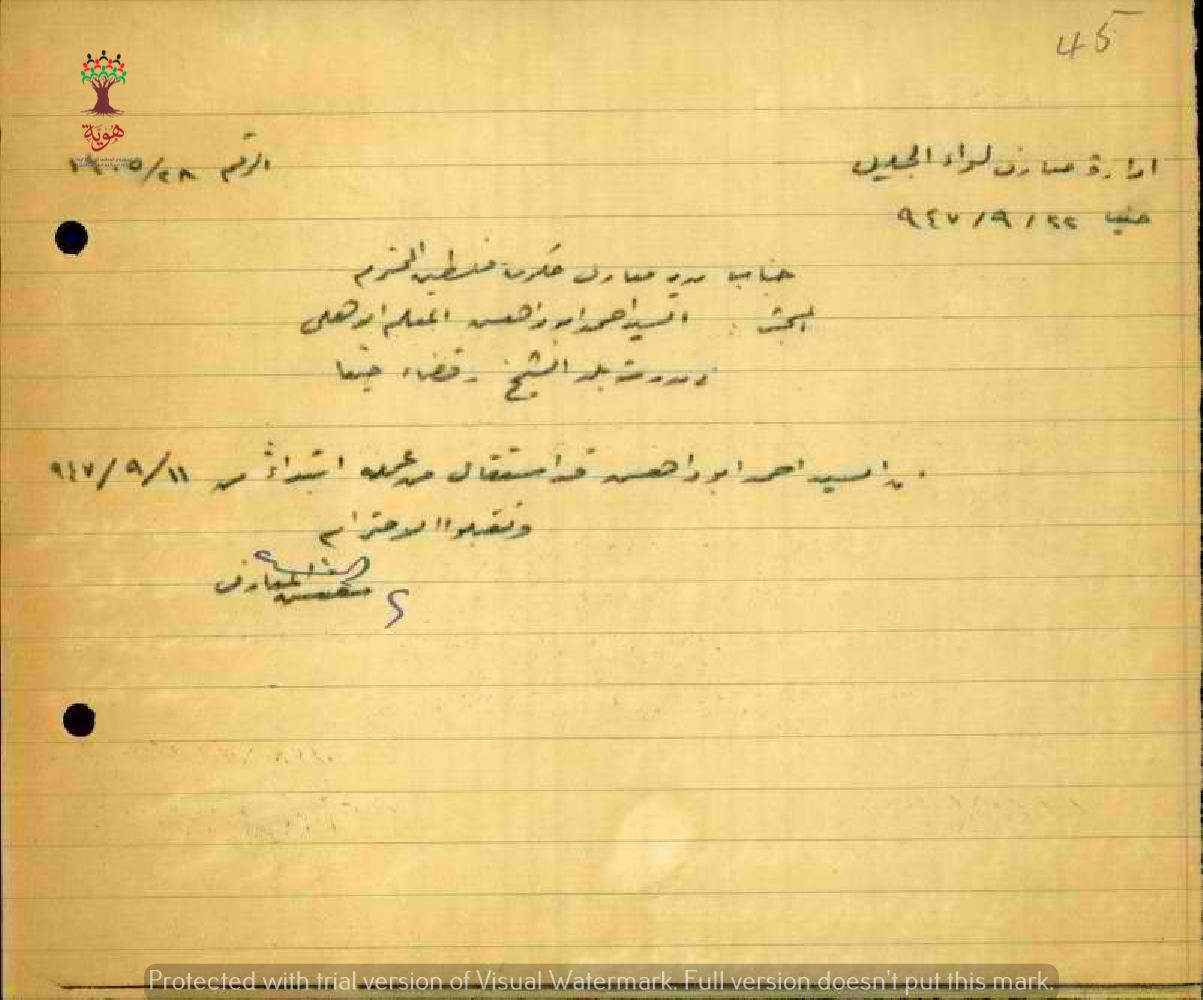 45
هُوِيَّة
ادارة معارف لواء الجليل
الرقم ٢٨/
حيفا ٢٢ / ٩ / ٩٤٧
جناب مدير معارف حكومة فلسطين المحترم
المبحث : السيد احمد ابو المعلم الاهلي
في مدرسة بلد الشيخ - قضاء حيفا
ان السيد احمد ابو قد استقال من عمله ابتداءً من ١١/ ٩/ ٩٤٧
وتفضلوا الاحترام
المعارف
Protected with trial version of Visual Watermark. Full version doesn't put this mark.